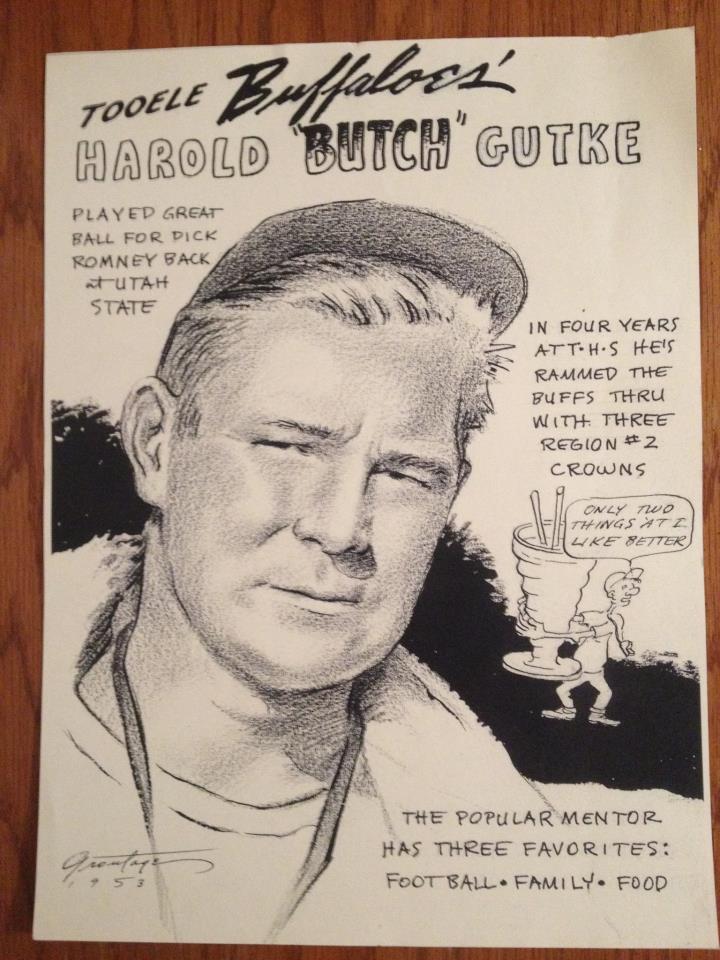 TOOELE Buffaloes'
HAROLD "BUTCH" GUTKE
PLAYED GREAT
BALL FOR DICK
ROMNEY BACK
at UTAH
STATE
IN FOUR YEARS
AT T·H·S HE'S
RAMMED THE
BUFFS THRU
WITH THREE
REGION #2
CROWNS
ONLY TWO
THINGS 'AT I
LIKE BETTER
THE POPULAR MENTOR
HAS THREE FAVORITES:
FOOTBALL • FAMILY • FOOD
1953